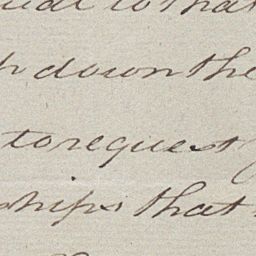 to that
down the
to request
ships that